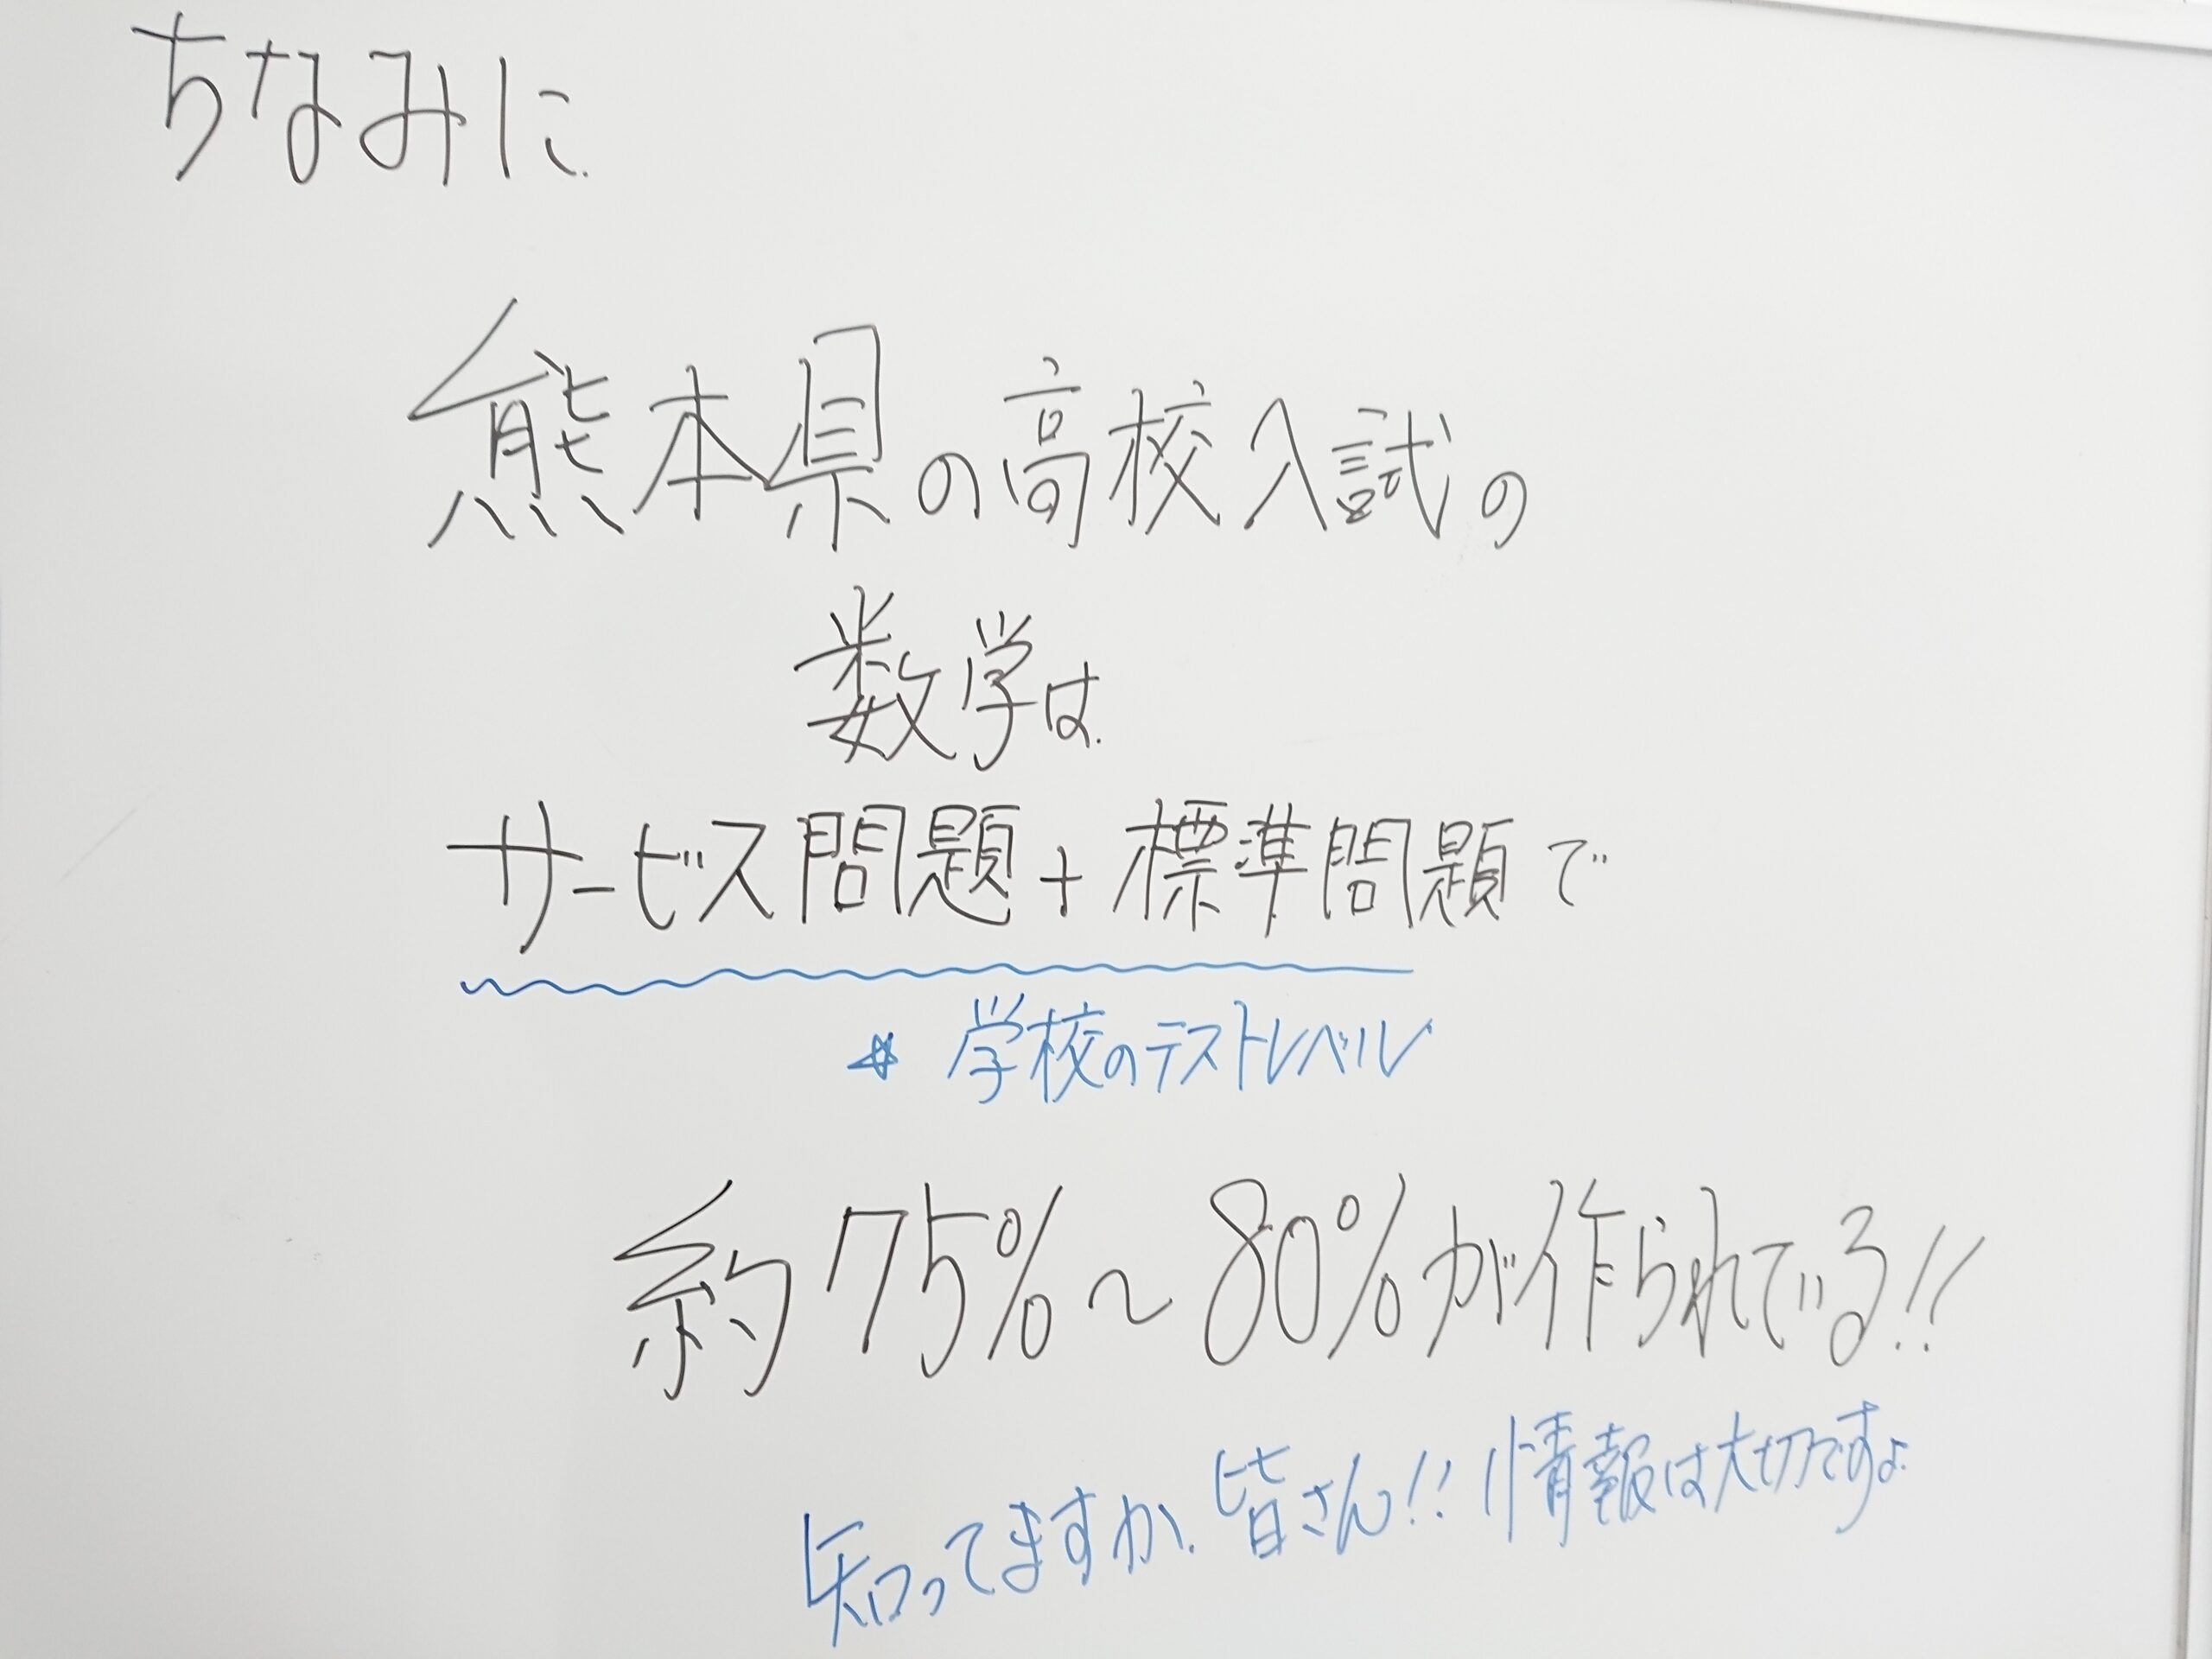 ちなみに
熊本県の高校入試の
数学は
サービス問題+標準問題で
☆ 学校のテストレベル
約75%~80%が作られている!!
知ってますか、皆さん!! 情報は大切ですよ